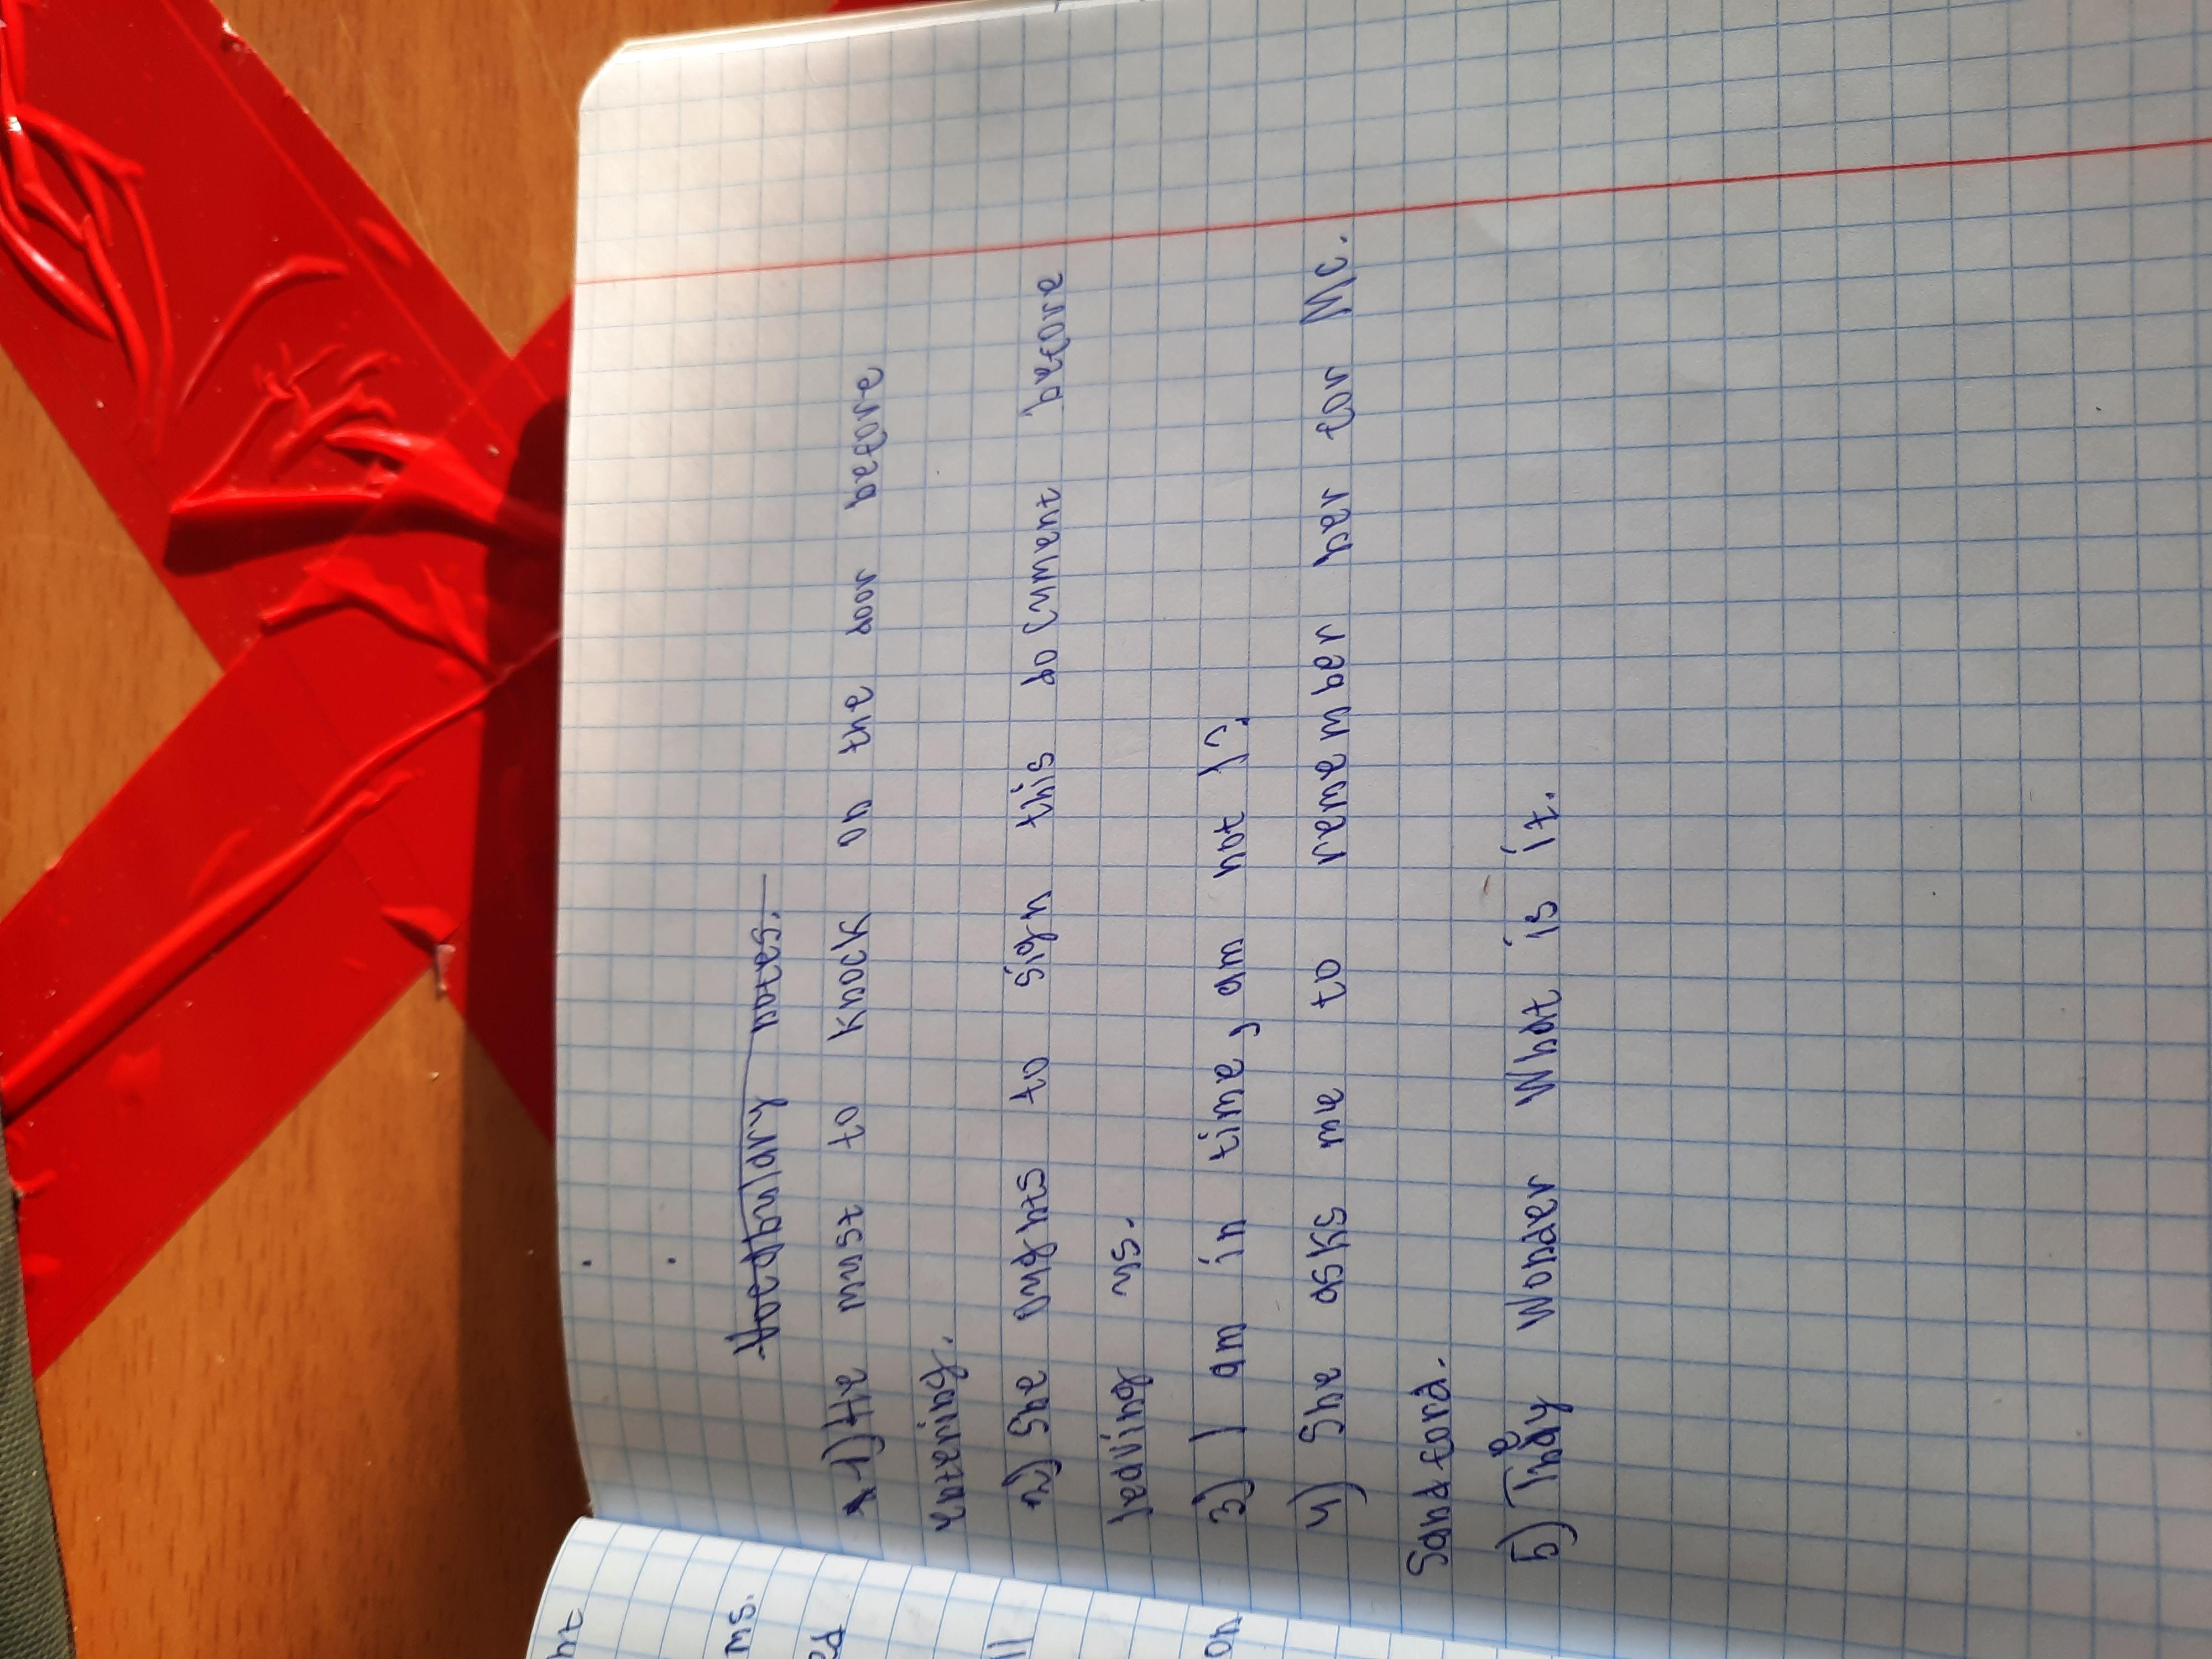 Vocabulary notes.
1) He must to knock on the door before
entering.
2) She oughts to sign this document before
leaving us.
3) I am in time, am not I?
4) She asks me to remember her for Mc.
Sandford.
5) They wonder what is it.
ms.
ed
ll
on